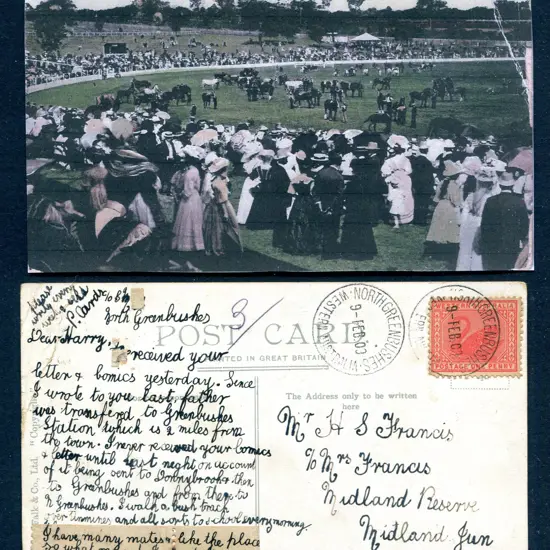 P. Cards
North Greenbushes
Dear Harry,
I received your
letter & comics yesterday. Since
I wrote to you last father
was transfered to Greenbushes
Station which is 2 miles from
the town. I never received your comics
& letter until last night on account
of it being sent to Donnybrook then
to Greenbushes and from there to
N Greenbushes. I walk a bush track
over timmines and all sorts to school every morning
I have many mates. I like the place
so what
POST CARD
PRINTED IN GREAT BRITAIN
The Address only to be written
here
3
NORTH GREENBUSHES
9-FEB 09
WESTERN AUSTRALIA
NORTH GREENBUSHES
9-FEB 09
POSTAGE ONE PENNY
Mr H S Francis
c/o Mrs Francis
Midland Reserve
Midland Jun
Valk & Co., Ltd. "Cop